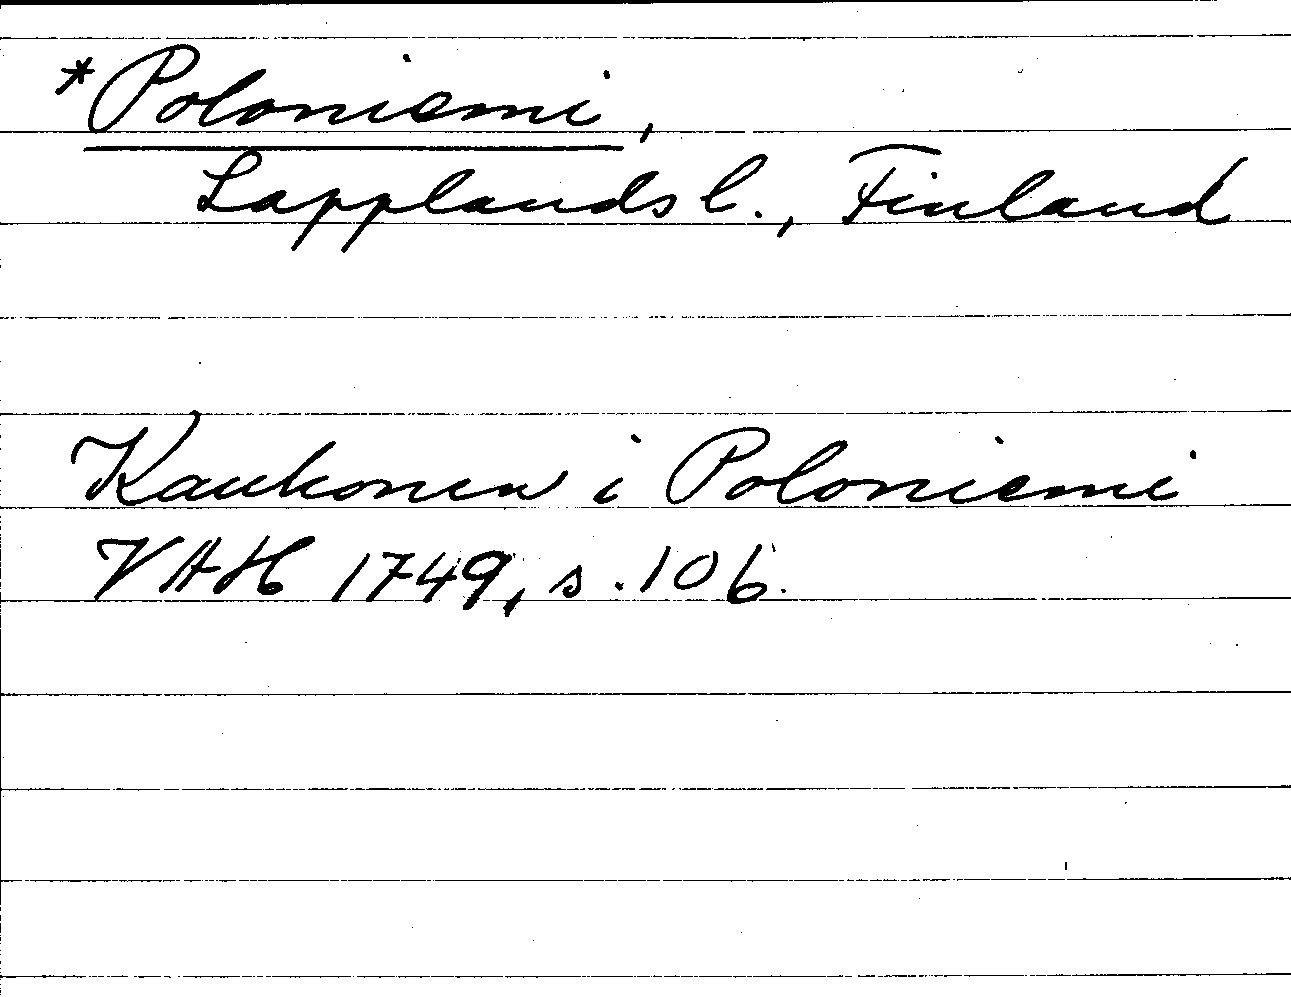 *Poloniemi,
Lapplands l., Finland
Kaukonen i Poloniemi
VAH 1749, s. 106.